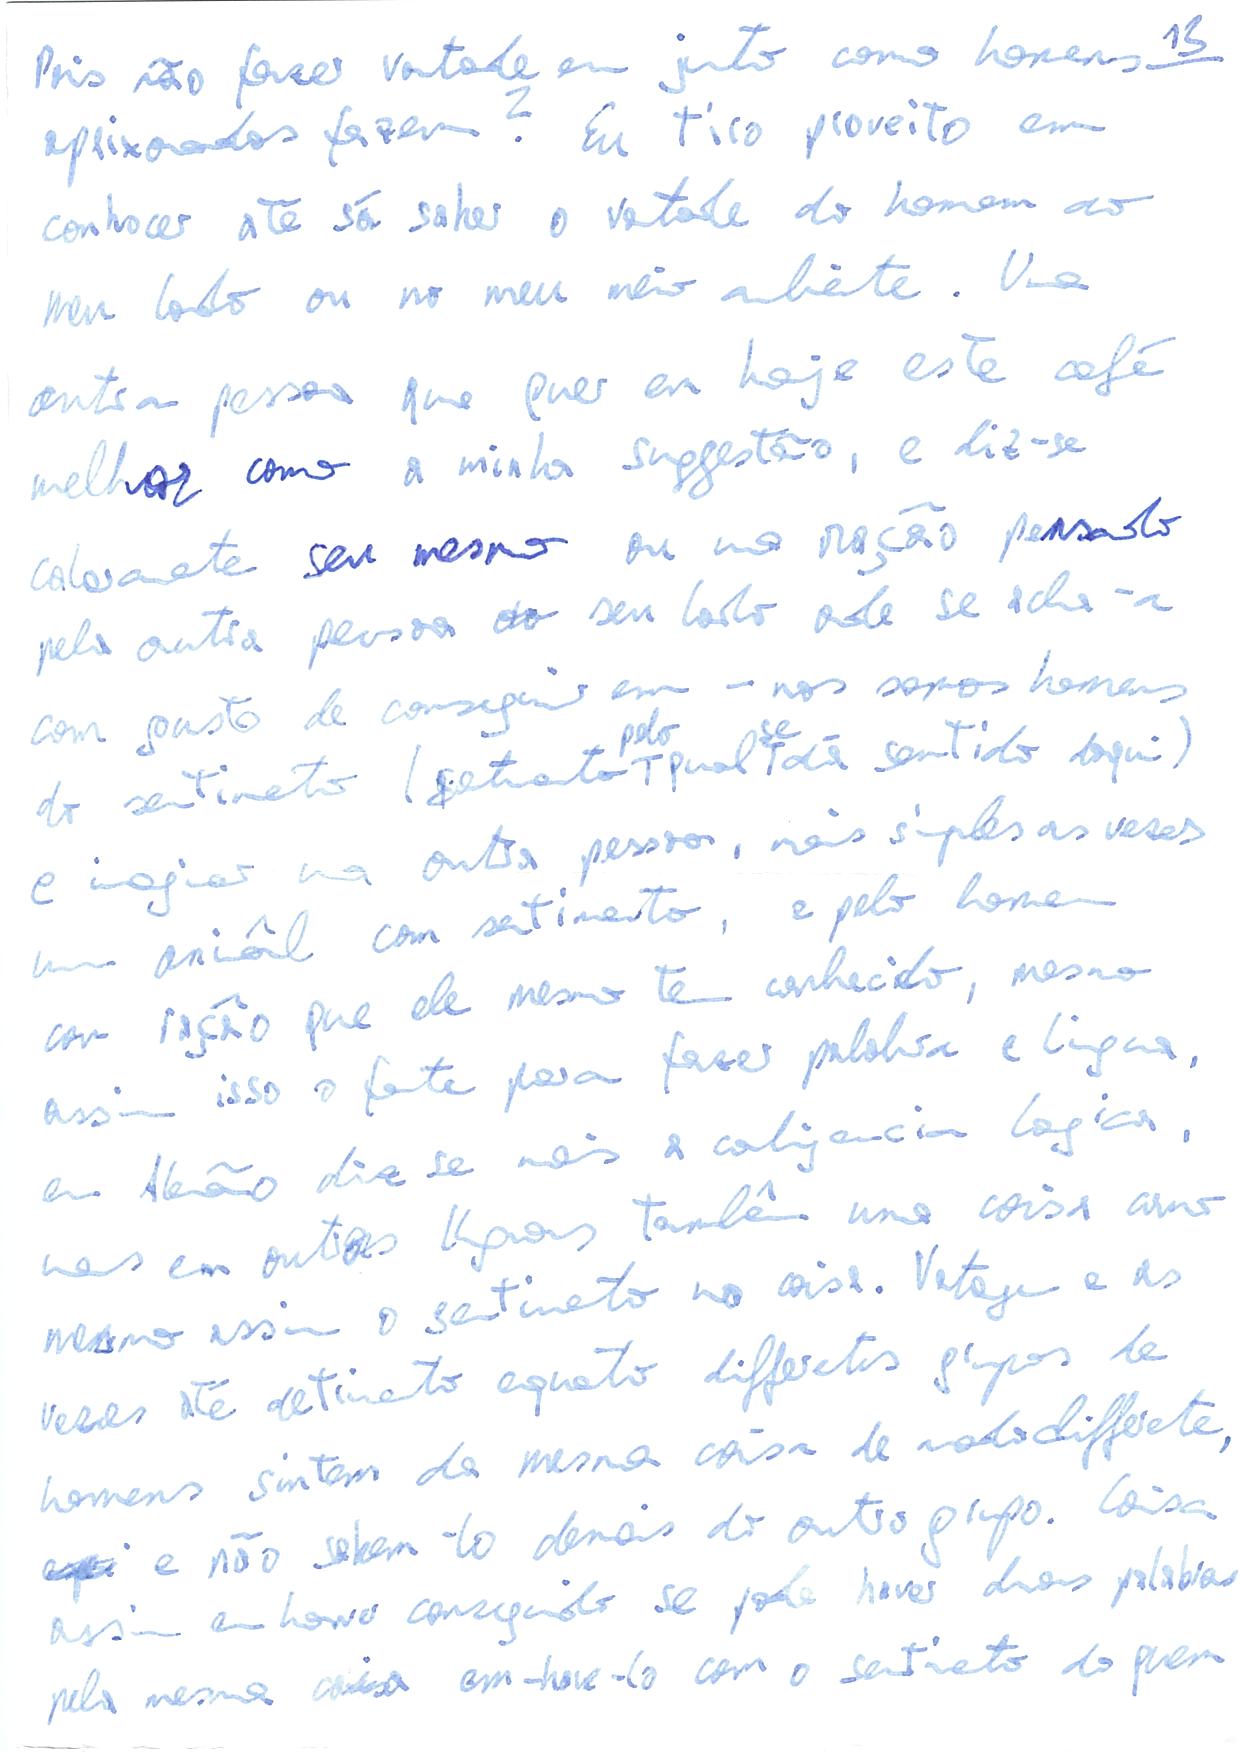 13
Pois não fazer vontade em junto como homens
apixonados fazem? Eu tiro proveito em
conhocer até só saber o vontade do homem ao
meu lado ou no meu meio abiente. Uma
outra pessoa que quer em hoje este café
melhor como a minha suggestão, e diz-se
seu mesmo ou na ração pensando
pela outra pessoa ao seu lado onde se acha-a
com gousto de conseguir em - nos somos homens
do sentimento ( pelo qual se dá sentido daqui)
e imaginar uma outra pessoa, mais simples as vezes
um aniâl com sentimento, e pelo homem
com ração que ele mesmo tem conhecido, mesmo
assim isso o fonte para fazer palabra e lingua,
em Alemão dize se mais a logica,
mas em outras lignas tambêm uma coisa como
mesmo assim o sentimento na coisa. Vatagem e as
vezes até detimento equanto differetes grupos de
homens sintem da mesma coisa de modo differete,
e não sabem-lo demais do outro grupo. Coisa
assim em haver conseguindo se pode haver duas palabras
pela mesma coisa em-have-lo com o sentimeto do quem